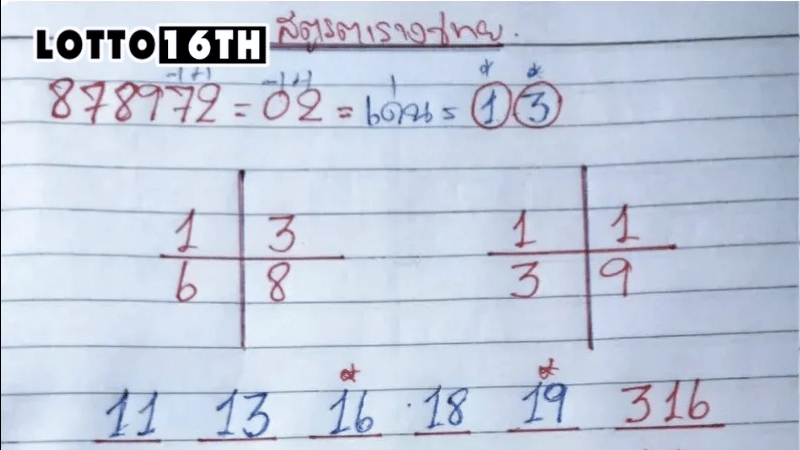 LOTTO 16TH สูตรตารางไทย.
-1 +1 -1 +1 * *
878972 = 02 = เด่น = 1 3
1 3 1 1
6 8 3 9
* *
11 13 16 · 18 19 316